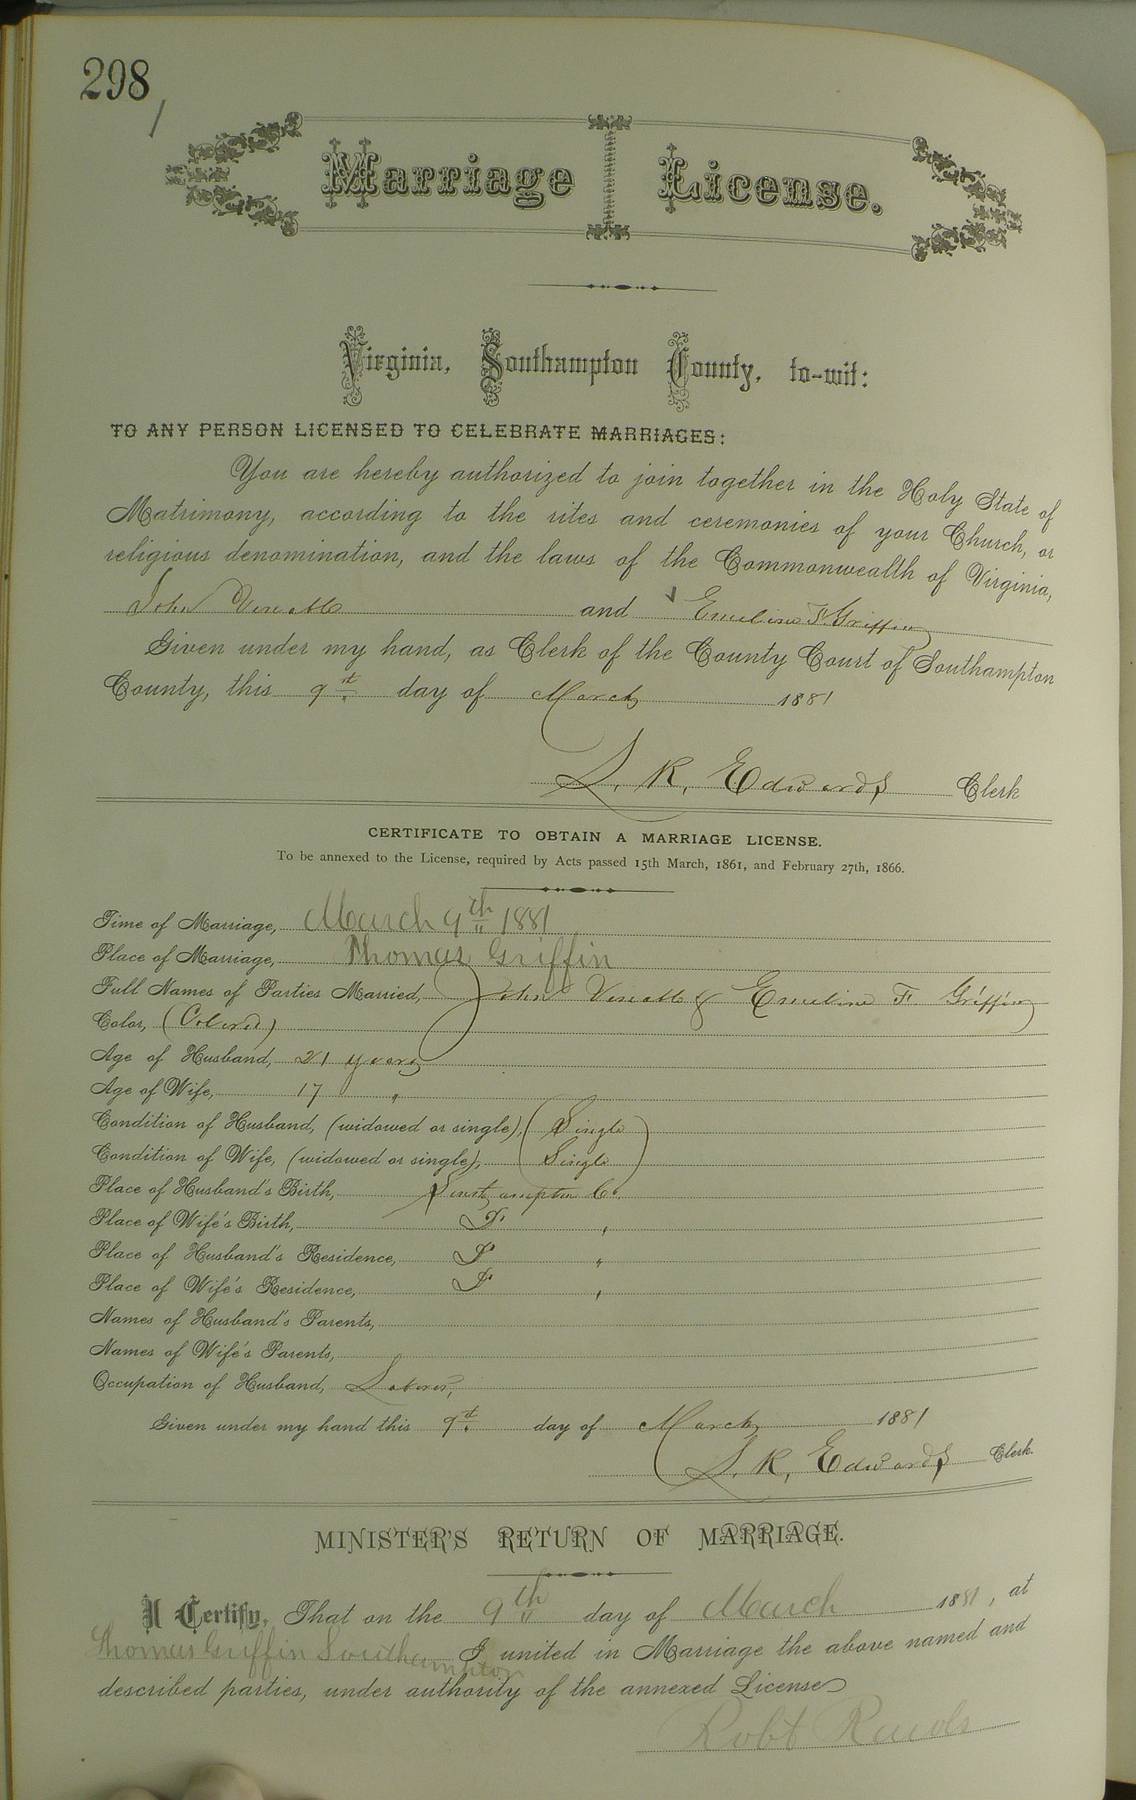 298
Marriage License.
Virginia, Southampton County, to-wit:
TO ANY PERSON LICENSED TO CELEBRATE MARRIAGES:
You are hereby authorized to join together in the Holy State of
Matrimony, according to the rites and ceremonies of your Church, or
religious denomination, and the laws of the Commonwealth of Virginia,
John and Emeline F. Griffin
Given under my hand, as Clerk of the County Court of Southampton
County, this 9th day of March 1881
L. R. Edwards Clerk
CERTIFICATE TO OBTAIN A MARRIAGE LICENSE.
To be annexed to the License, required by Acts passed 15th March, 1861, and February 27th, 1866.
Time of Marriage, March 9th 1881
Place of Marriage, Thomas Griffin
Full Names of Parties Married, John & Emeline F Griffin
Color, (Colored)
Age of Husband, 21 years
Age of Wife, 17 "
Condition of Husband, (widowed or single), (Single)
Condition of Wife, (widowed or single), (Single)
Place of Husband's Birth, Southampton Co.
Place of Wife's Birth, Do "
Place of Husband's Residence, Do "
Place of Wife's Residence, Do "
Names of Husband's Parents,
Names of Wife's Parents,
Occupation of Husband, Laborer,
Given under my hand this 9th day of March 1881
L. R. Edwards Clerk.
MINISTER'S RETURN OF MARRIAGE.
I Certify, That on the 9th day of March 1881, at
Thomas Griffin Southampton I united in Marriage the above named and
described parties, under authority of the annexed License
Robt Rawls